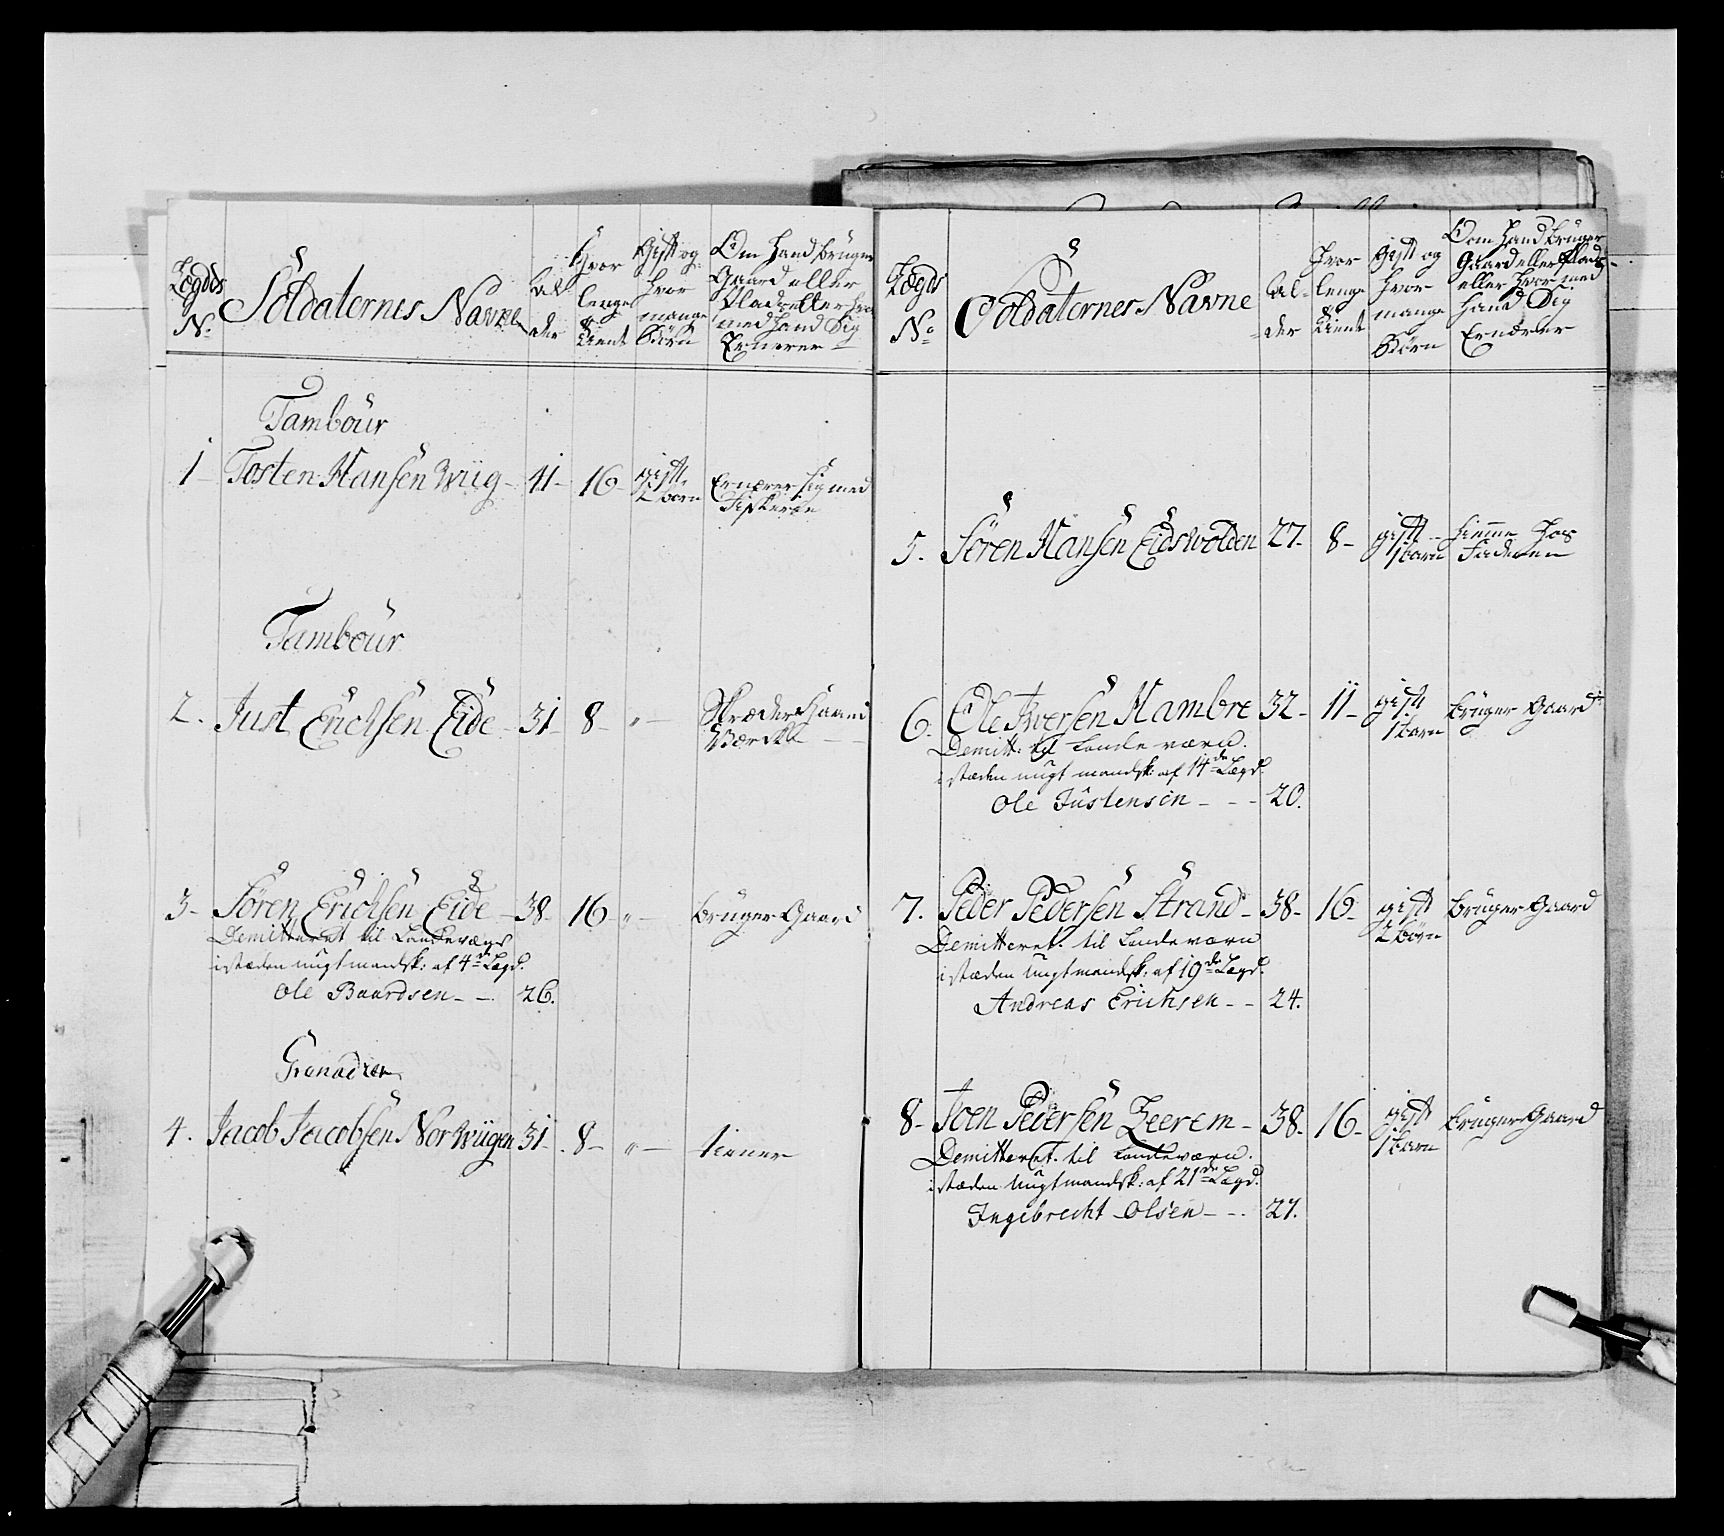 Lægds
No
Soldaternes Navne
Al-
der
Hvor
lenge
tient
Gift og
hvor
mange
Børn
Om Hand bruger
Gaard eller
Plads eller hvor
med Hand Sig
Ernerer
Tambour
1 Tosten Hansen Wiig 41 16 gift 2 børn Ernærer sig med
Fiskerie
Tambour
2. Just Erichsen Eide 31 8 " Skræder Haand
Værck
3 Søren Erichsen Eide 38 16 " bruger Gaard
Demitteret til Landeværn
istæden ungt mandsk: af 4de Lægd.
Ole Baardsen 26.
Granadeer
4. Jacob Jacobsen Norwiigen 31 8 " tiener
Lægds
No
Soldaternes Navne
Al-
der
Hvor
lenge
tient
Gift og
hvor
mange
Børn
Om Hand bruger
Gaard eller Plads
eller Hvor med
Hand Sig
Ernærer
5. Søren Hansen Eidswolden 27 8 gift 1 barn hiemme hos
Faderen
6. Ole Iversen Hambre 32 11 gift 1 barn bruger Gaard
Demitt: til Landeværn.
istæden ungt mandsk: af 14de Lægd.
Ole Justensen 20.
7. Peder Pedersen Strand 38 16 gift 2 børn bruger Gaard
Demitteret til Landeværn
istæden Ungt mandsk: af 19de Lægd.
Andreas Erichsen 24.
8 Joen Pedersen Leerem 38 16 gift 1 barn bruger Gaard
Demitteret til Landeværn.
istæden Ungt mandsk: af 21de Lægd.
Ingebrecht Olsen 27.